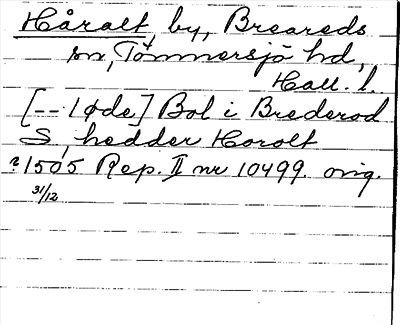 Håralt, by, Breareds
sn, Tönnersjö hd,
Hall. l.
[--- 1 øde] Bol i Brederød
S, hedder Horolt
? 1505 Rep. II nr 10499. orig.
31/12